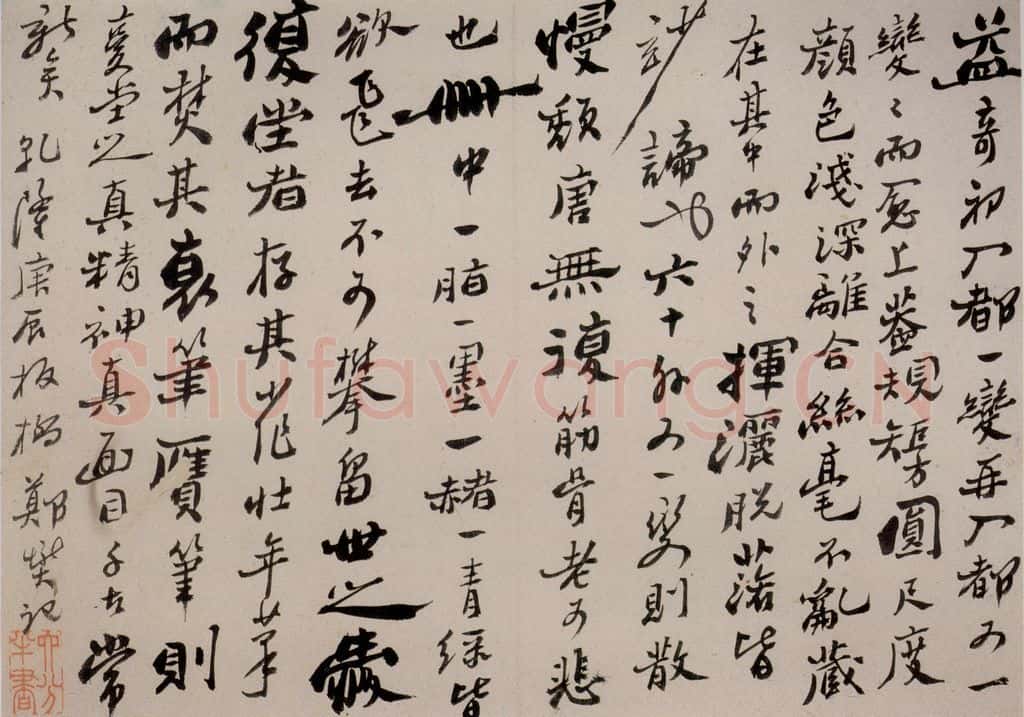 益奇初入都一變再入都又一
變〻而愈上蓋規矩方圓尺度
顏色淺深離合絲毫不亂藏
在其中而外之揮灑脫落皆
妙諦也六十外又一變則散
慢頹唐無復筋骨老可悲
也冊中一脂一墨一赭一青綠皆
欲飛去不可攀留世之愛
復堂者存其少作壯年筆
而焚其衰筆贋筆則
復堂之真精神真面目千古常
新矣 乾隆庚辰板橋鄭燮記
六分半書
Shufawang.CN